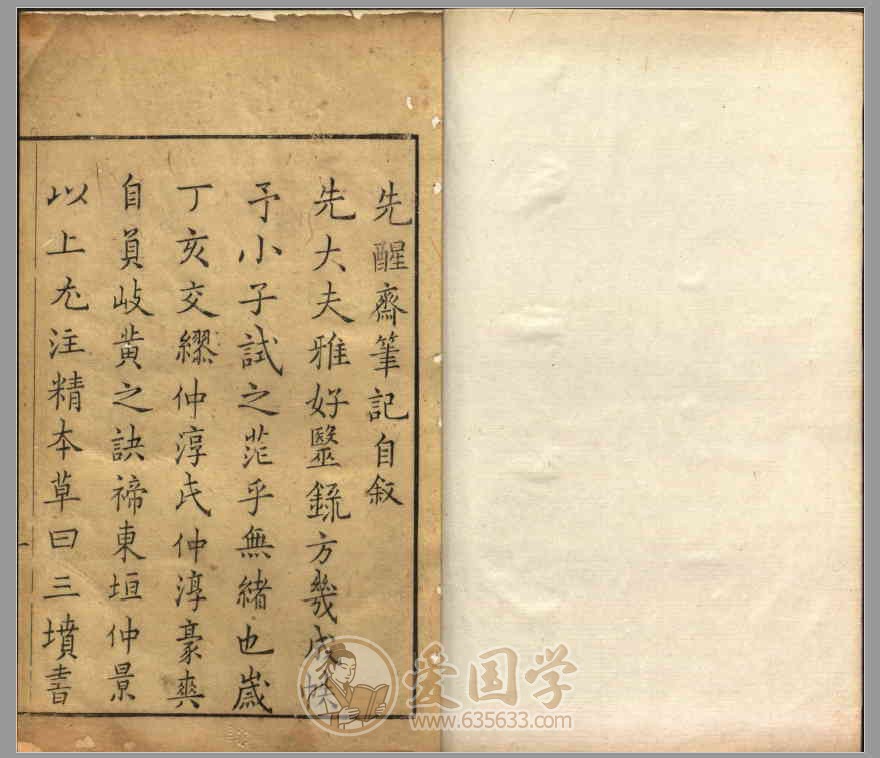 先醒齋筆記自叙
先大夫雅好毉録方幾成帙
予小子試之茫乎無緒也嵗
丁亥交繆仲淳氏仲淳豪爽
自負岐黄之訣禘東垣仲景
以上尤注精本草曰三墳書
一
爱国学
www.635633.com